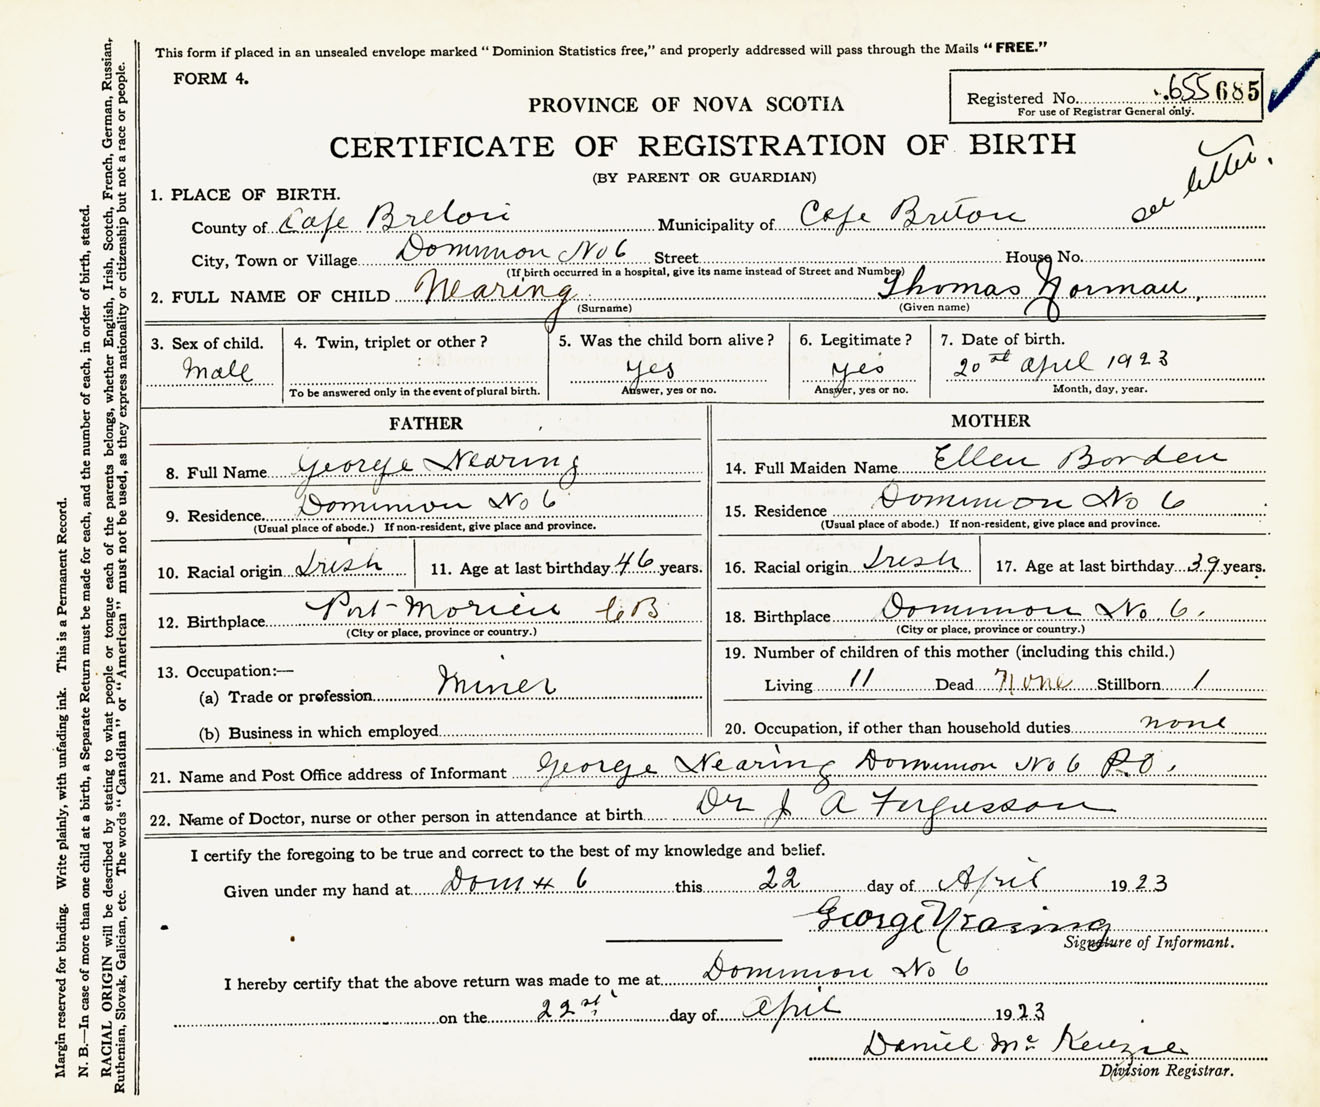 This form if placed in an unsealed envelope marked "Dominion Statistics free," and properly addressed will pass through the Mails "FREE."
FORM 4.
Registered No. 655 685
For use of Registrar General only.
PROVINCE OF NOVA SCOTIA
CERTIFICATE OF REGISTRATION OF BIRTH
(BY PARENT OR GUARDIAN)
see letter.
1. PLACE OF BIRTH.
County of Cape Breton Municipality of Cape Breton
City, Town or Village Dominion No 6 Street House No.
(If birth occurred in a hospital, give its name instead of Street and Number)
2. FULL NAME OF CHILD Nearing Thomas Norman
(Surname) (Given name)
3. Sex of child. 4. Twin, triplet or other? 5. Was the child born alive? 6. Legitimate? 7. Date of birth.
Male yes yes 20th April 1923
To be answered only in the event of plural birth. Answer, yes or no. Answer, yes or no. Month, day, year.
FATHER MOTHER
8. Full Name George Nearing 14. Full Maiden Name Ellen Borden
9. Residence Dominion No 6 15. Residence Dominion No 6
(Usual place of abode.) If non-resident, give place and province. (Usual place of abode.) If non-resident, give place and province.
10. Racial origin Irish 11. Age at last birthday 46 years. 16. Racial origin Irish 17. Age at last birthday 39 years.
12. Birthplace Port-Morien C B 18. Birthplace Dominion No 6.
(City or place, province or country.) (City or place, province or country.)
13. Occupation:— 19. Number of children of this mother (including this child.)
(a) Trade or profession Miner Living 11 Dead None Stillborn 1
(b) Business in which employed 20. Occupation, if other than household duties none
21. Name and Post Office address of Informant George Nearing Dominion No 6 P.O.
22. Name of Doctor, nurse or other person in attendance at birth Dr J A Fergusson
I certify the foregoing to be true and correct to the best of my knowledge and belief.
Given under my hand at Dom # 6 this 22 day of April 1923
George Nearing
Signature of Informant.
I hereby certify that the above return was made to me at Dominion No 6
on the 22st day of April 1923
Daniel Mc Kenzie
Division Registrar.
Margin reserved for binding. Write plainly, with unfading ink. This is a Permanent Record.
N. B.—In case of more than one child at a birth, a Separate Return must be made for each, and the number of each, in order of birth, stated.
RACIAL ORIGIN will be described by stating to what people or tongue each of the parents belongs, whether English, Irish, Scotch, French, German, Russian,
Ruthenian, Slovak, Galician, etc. The words "Canadian" or "American" must not be used, as they express nationality or citizenship but not a race or people.